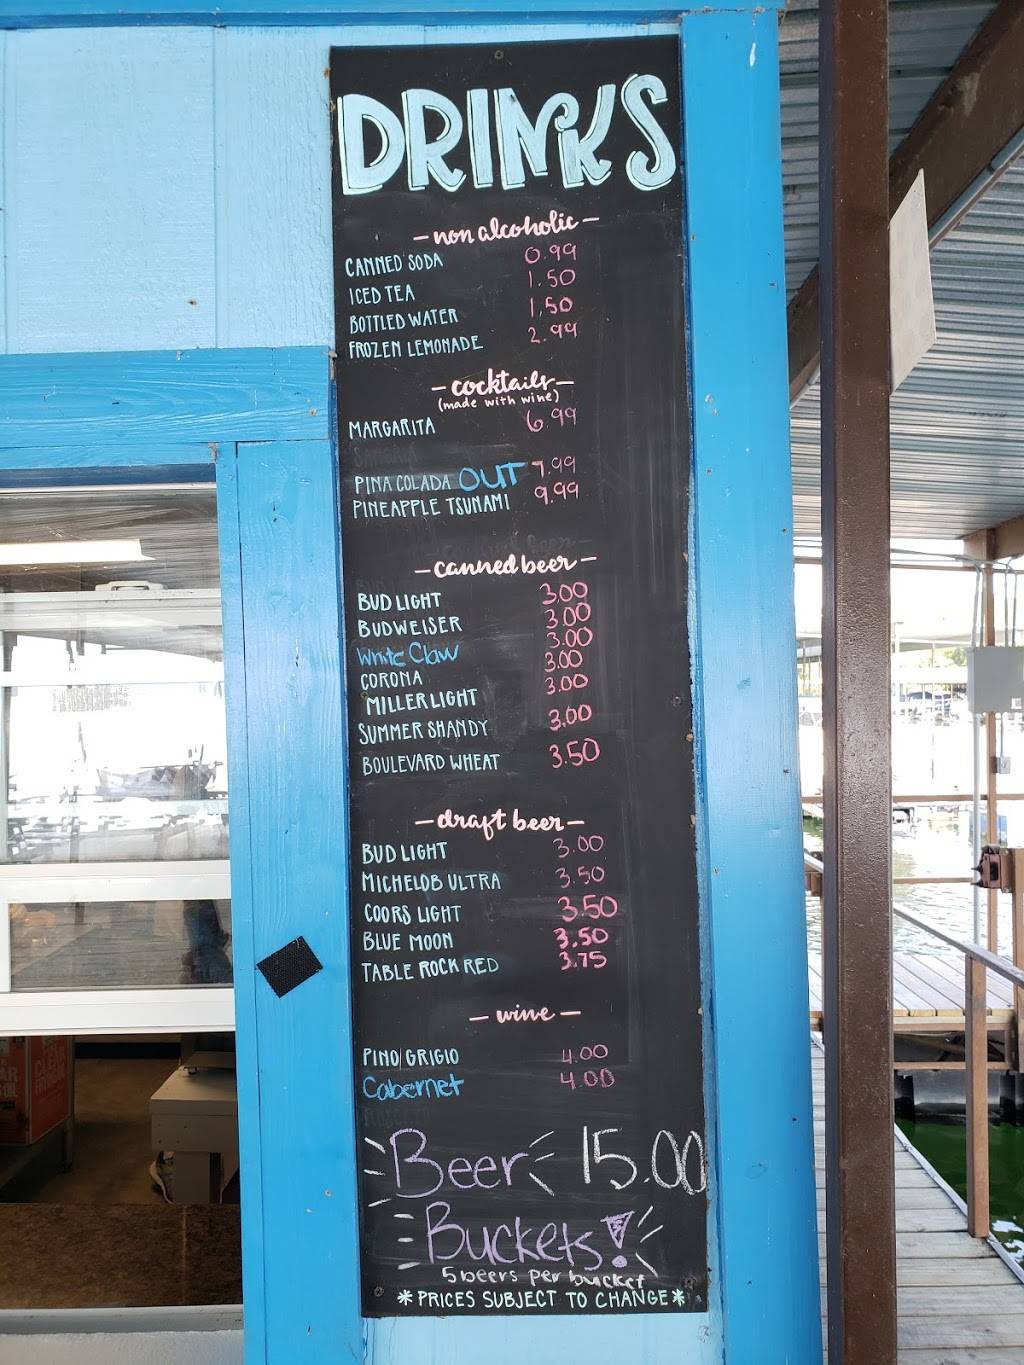 DRINKS
- non alcoholic -
CANNED SODA 0.99
ICED TEA 1.50
BOTTLED WATER 1.50
FROZEN LEMONADE 2.99
- cocktails -
(made with wine)
MARGARITA 6.99
PINA COLADA OUT 7.99
PINEAPPLE TSUNAMI 9.99
- canned beer -
BUD LIGHT 3.00
BUDWEISER 3.00
White Claw 3.00
CORONA 3.00
MILLER LIGHT 3.00
SUMMER SHANDY 3.00
BOULEVARD WHEAT 3.50
- draft beer -
BUD LIGHT 3.00
MICHELOB ULTRA 3.50
COORS LIGHT 3.50
BLUE MOON 3.50
TABLE ROCK RED 3.75
- wine -
PINO GRIGIO 4.00
Cabernet 4.00
Beer 15.00
Buckets!
5 beers per bucket
*PRICES SUBJECT TO CHANGE*